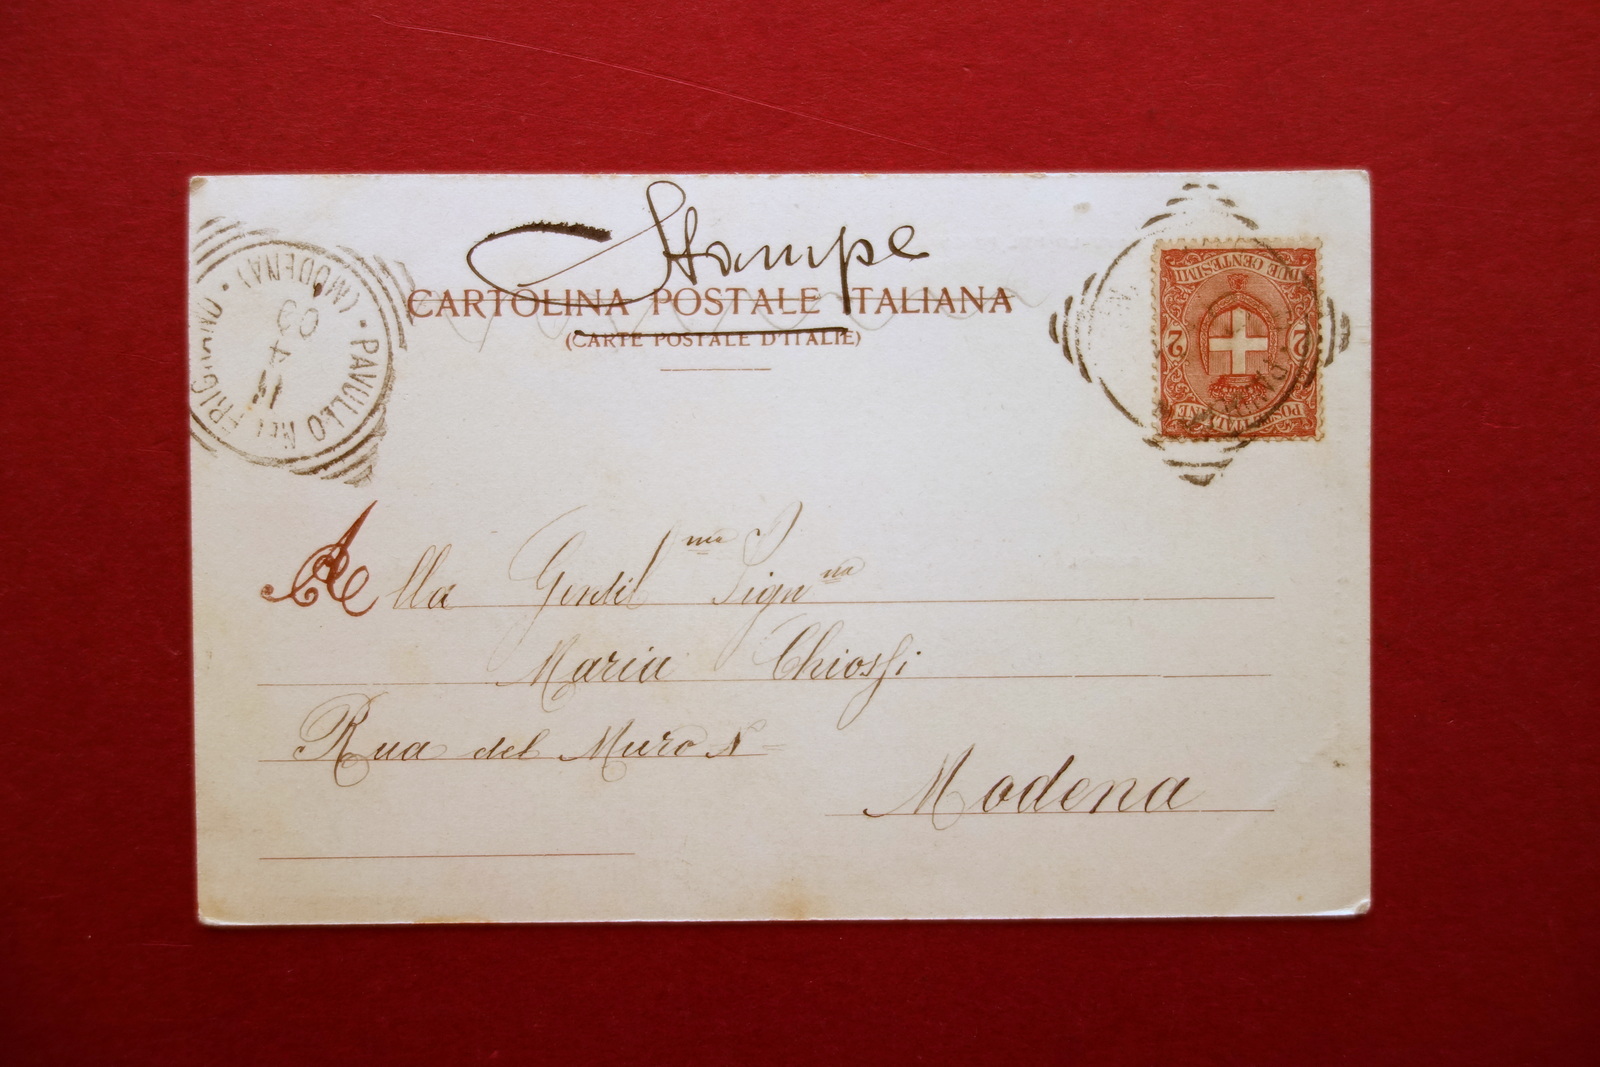 Stampe
CARTOLINA POSTALE ITALIANA
(CARTE POSTALE D'ITALIE)
PAVULLO NEL FRIGNANO
(MODENA)
DUE CENTESIMI
2 2
POSTE ITALIANE
Alla Gentil ma Sign na
Maria Chiossi
Rua del Muro N
Modena